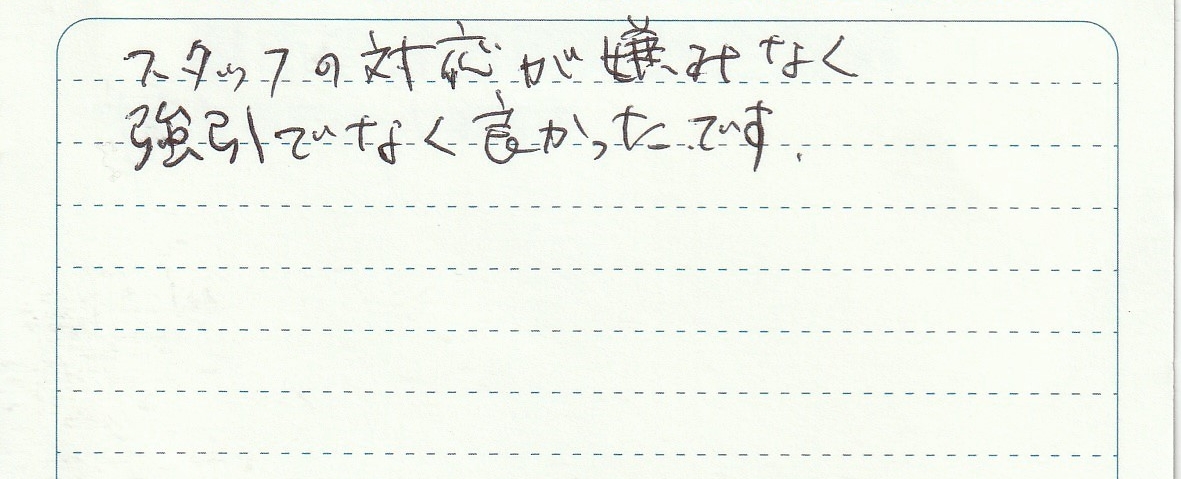 スタッフの対応が嫌みなく
強引でなく良かったです.